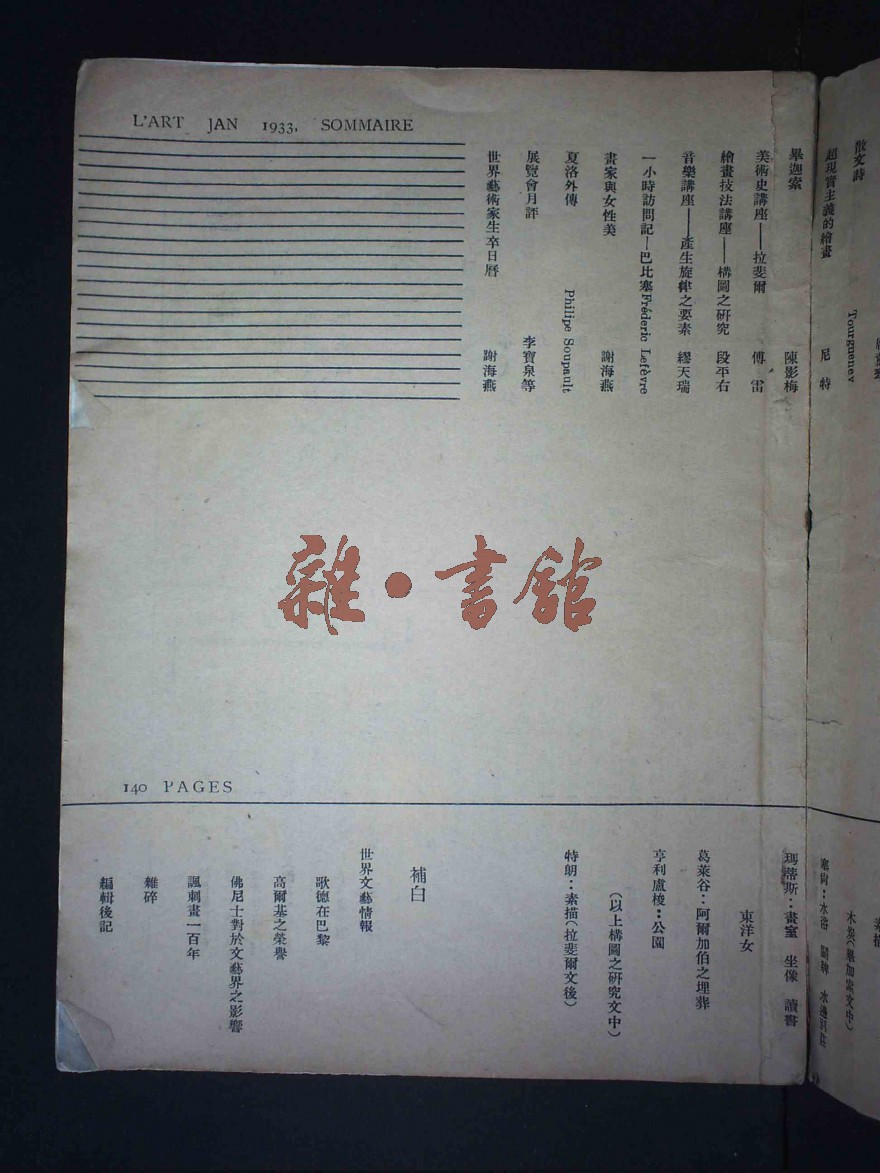 L'ART JAN 1933, SOMMAIRE
散文詩 Tourguenev
超現實主義的繪畫 尼特
畢迦索 陳影梅
美術史講座——拉斐爾 傅雷
繪畫技法講座——構圖之研究 段平右
音樂講座——產生旋律之要素 繆天瑞
一小時訪問記—巴比塞 Fréderic Lefèvre
畫家與女性美 謝海燕
夏洛外傳 Philipe Soupault
展覽會月評 李寶泉等
世界藝術家生卒日曆 謝海燕
雜·書館
140 PAGES
木炭(畢加索文中)
瑪蒂斯:畫室 坐像 讀書
東洋女
葛萊谷:阿爾加伯之埋葬
亨利盧梭:公園
(以上構圖之研究文中)
特朗:素描(拉斐爾文後)
補白
世界文藝情報
歌德在巴黎
高爾基之榮譽
佛尼士對於文藝界之影響
諷刺畫一百年
雜碎
編輯後記